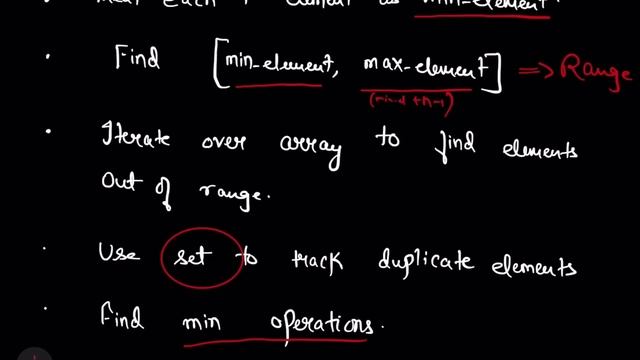 Treat each element as min-element
Find [min-element, max-element] => Range
(min-el + n-1)
Iterate over array to find elements
Out of range.
Use set to track duplicate elements
Find min operations.